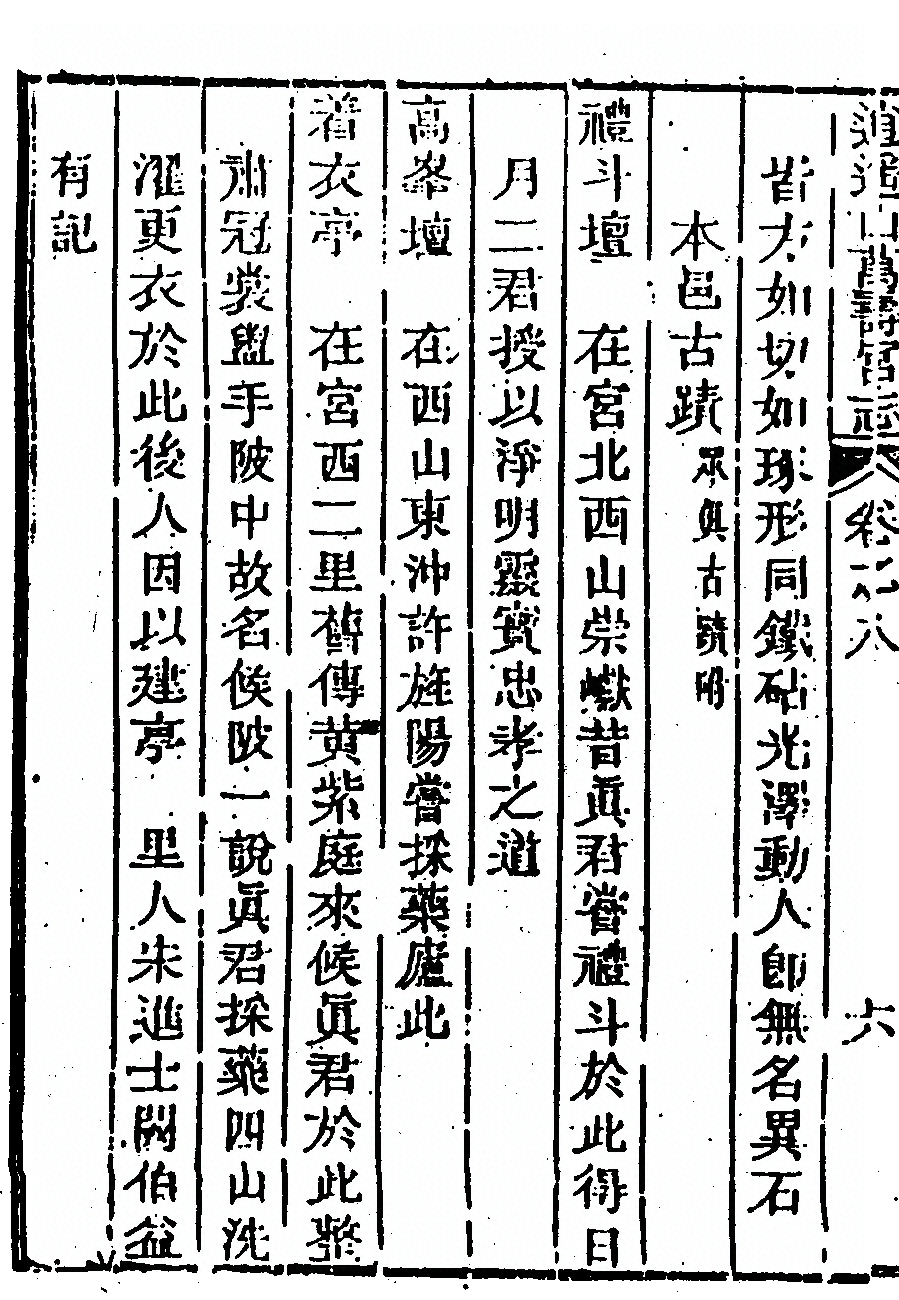 逍遙山萬壽宮志 卷之八 六
皆方如切如琢形同鐵砧光澤動人卽無名異石
本邑古蹟 眾眞古蹟附
禮斗壇 在宮北西山崇巘昔眞君嘗禮斗於此得日
月二君授以淨明靈寶忠孝之道
高峯壇 在西山東沖許旌陽嘗採藥廬此
着衣亭 在宮西二里舊傳黃紫庭來候眞君於此整
肅冠裳盥手陂中故名候陂一說眞君採藥四山洗
濯更衣於此後人因以建亭 里人朱進士闕伯益
有記